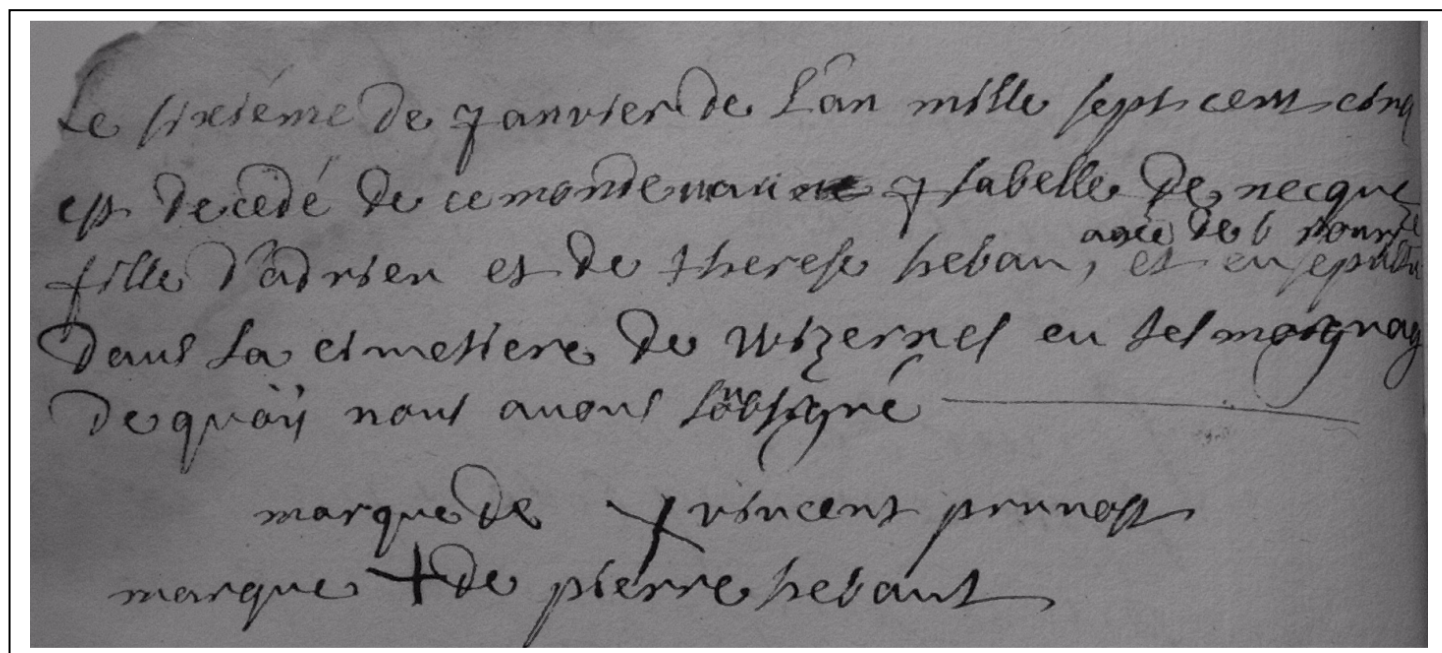 Le sixiéme de Janvier de L'an mille sept cent cinq
est decedé de ce monde Isabelle de necque
agée de 6 jours
fille d'adrien et de therese heban, et ensepultu
dans La cimetiere de Wizernes en tesmoignag
de quoÿ nous avons soubsigné
marque de vincent pruvost
marque + de pierre hebant